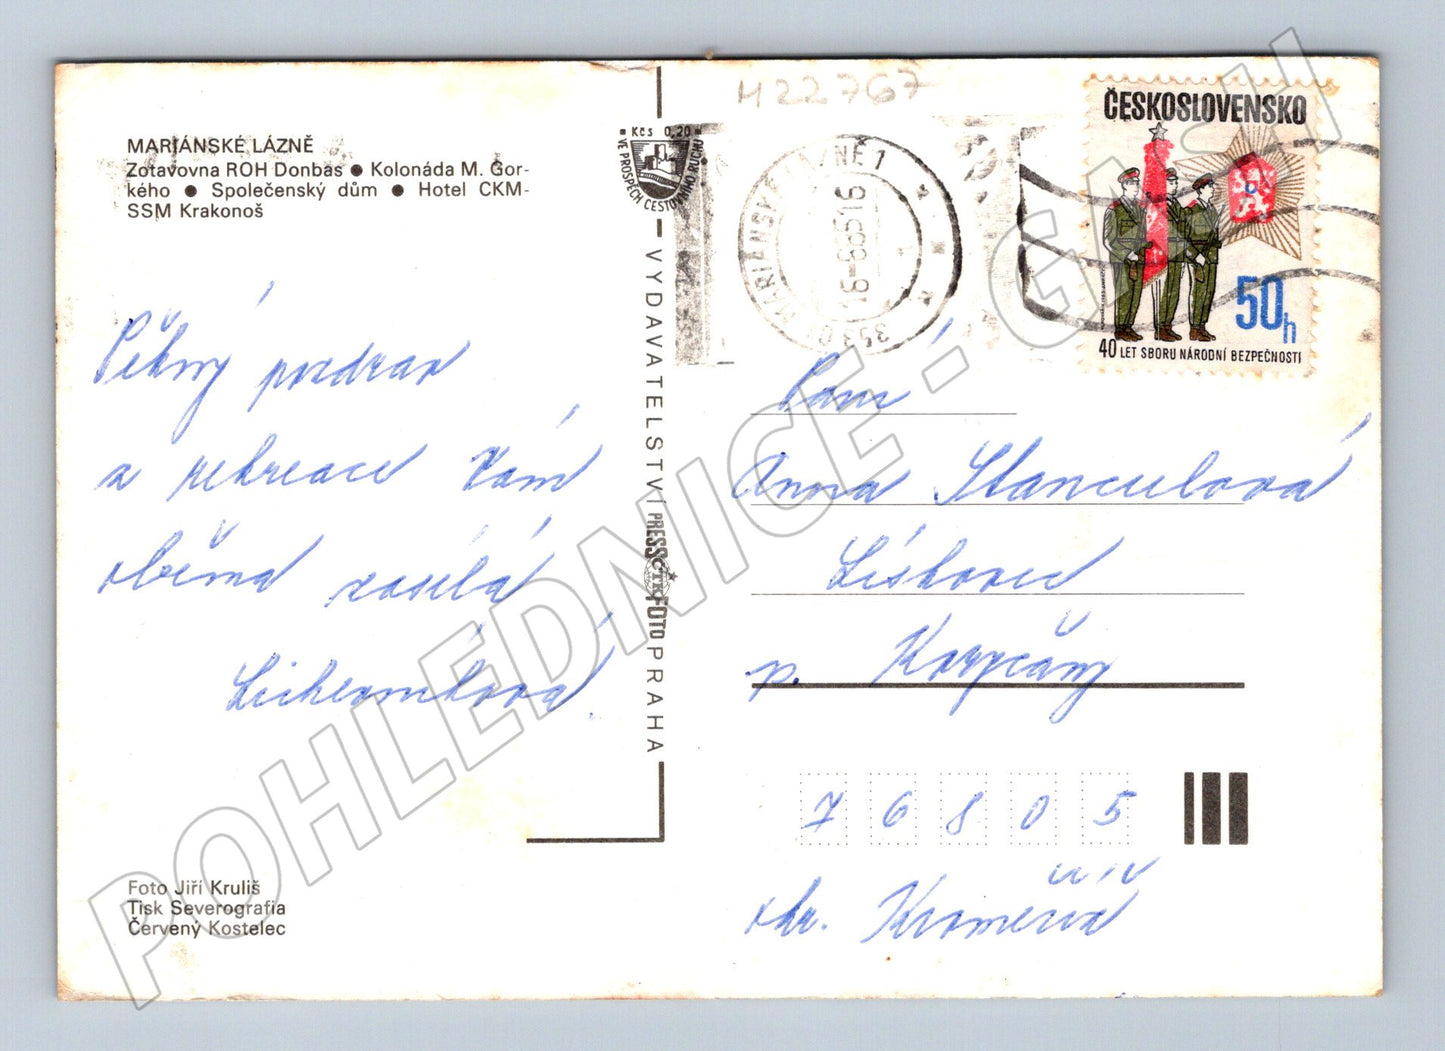 M22767
MARIÁNSKÉ LÁZNĚ
Zotavovna ROH Donbas ● Kolonáda M. Gor-
kého ● Společenský dům ● Hotel CKM-
SSM Krakonoš
Kčs 0,20
VE PROSPĚCH CESTOVNÍHO RUCHU
MARIÁNSKÉ LÁZNĚ 1
16-8-85 16
353 01
ČESKOSLOVENSKO
50h
40 LET SBORU NÁRODNÍ BEZPEČNOSTI
Pěkný pozdrav
z rekreace Vám
oběma zasílá
VYDAVATELSTVÍ PRESSFOTO PRAHA
ČTK
Paní
Anna Stanculová
Lískovec
p. Koryčany
76805
okr. Kroměříž
Foto Jiří Kruliš
Tisk Severografia
Červený Kostelec
POHLEDNICE - GASH